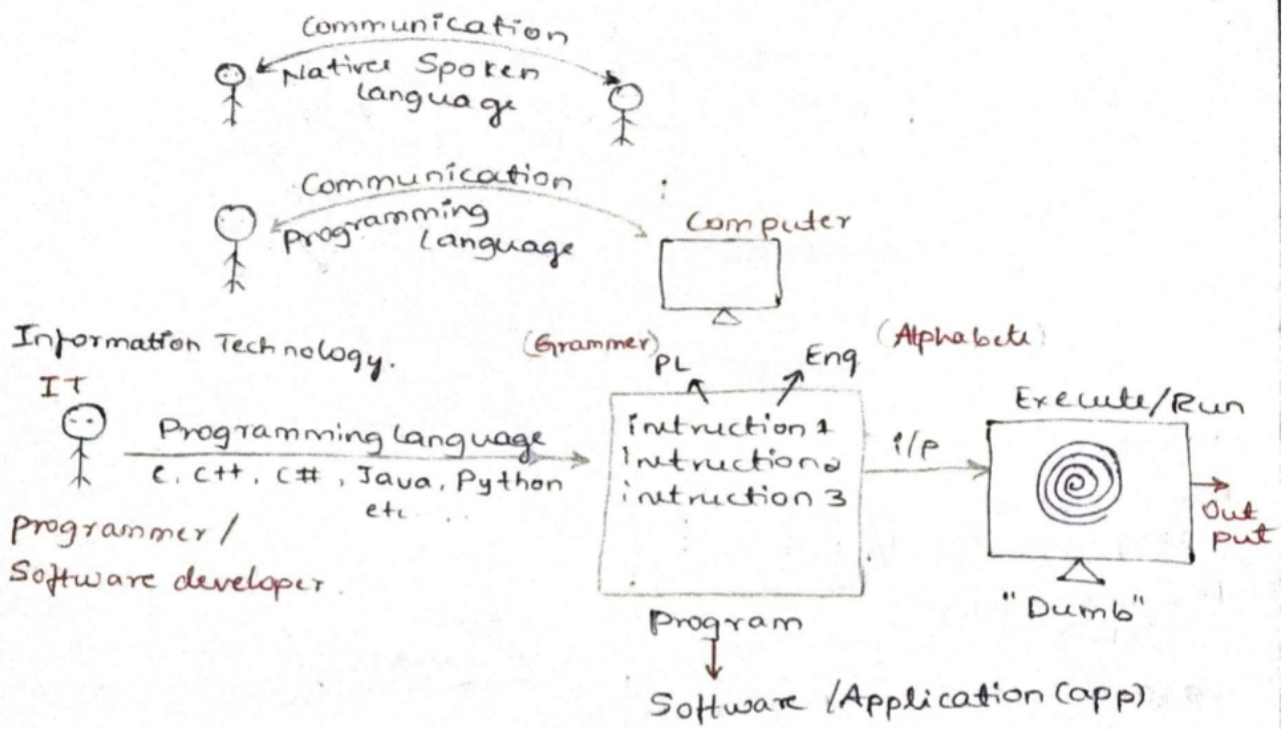 Communication
Native Spoken
Language
Communication
Programming
Language
Computer
Information Technology.
IT
(Grammer)
PL
Eng
(Alphabets)
Programming Language
C, C++, C#, Java, Python
etc...
programmer/
Software developer.
intruction 1
intruction2
intruction 3
i/p
Execute/Run
Out
put
"Dumb"
program
Software /Application (app)